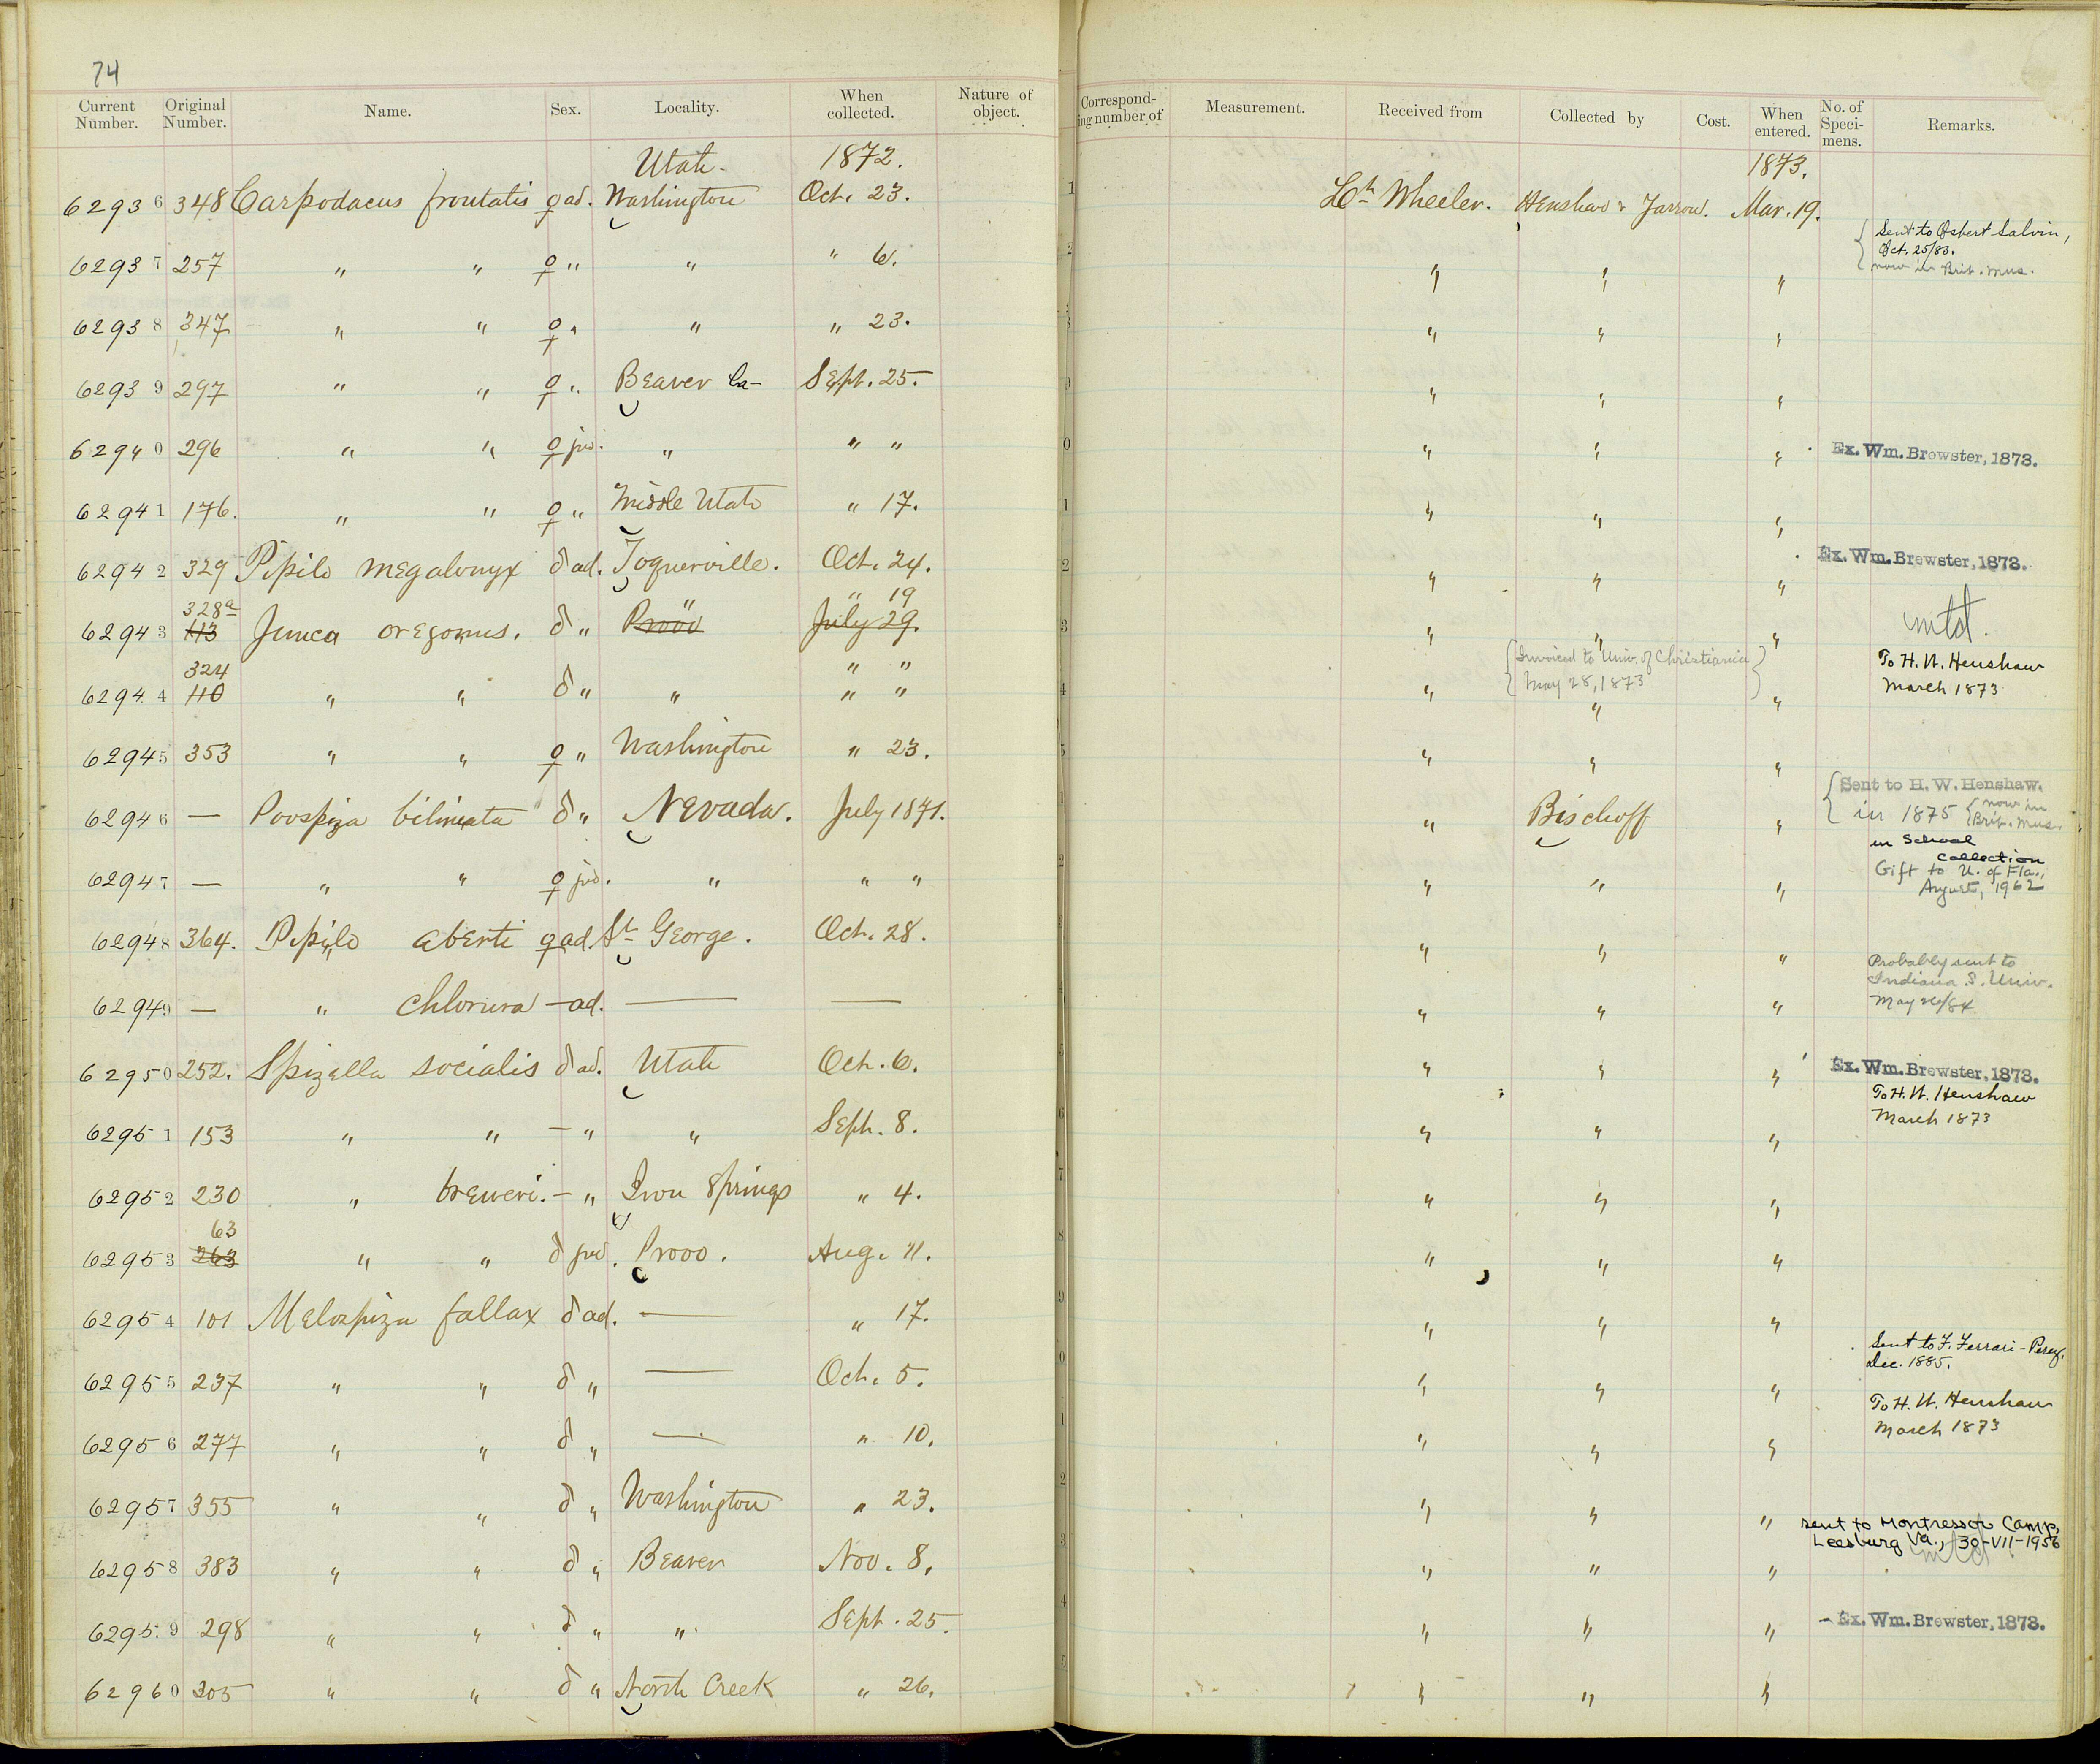 74
Current Number. Original Number. Name. Sex. Locality. When collected. Nature of object. Corresponding number of Measurement. Received from Collected by Cost. When entered. No. of Specimens. Remarks.
Utah. 1872. 1873.
62936 348 Carpodacus frontalis ♀ ad. Washington Oct. 23. Lt. Wheeler. Henshaw & Yarrow. Mar. 19.
62937 257 " " ♀ " " " 6. " " " { Sent to Osbert Salvin,
Oct. 25/83.
now in Brit. Mus.
62938 347 " " ♀ " " " 23. " " "
62939 297 " " ♀ " Beaver Ca- Sept. 25. " " "
62940 296 " " ♀ juv. " " " " " " Ex. Wm. Brewster, 1873.
62941 176. " " ♀ " Middle Utah " 17. " " "
62942 329 Pipilo megalonyx ♂ ad. Toquerville. Oct. 24. " " " Ex. Wm. Brewster, 1873.
328a " " 19
62943 113 Junco oregonus. ♂ " Provo July 29. " " " mtd.
324 " "
62944 110 " " ♂ " " " " " { Invoiced to Univ. of Christiania
May 28, 1873 } " " To H. W. Henshaw
March 1873
62945 353 " " ♀ " Washington " 23. " " "
62946 — Poospiza bilineata ♂ " Nevada. July 1871. " Bischoff " { Sent to H. W. Henshaw.
in 1875 { now in
Brit. Mus.
in School
Collection
62947 — " " ♀ juv. " " " " " " Gift to U. of Fla.,
August, 1962
62948 364. Pipilo aberti ♀ ad. St. George. Oct. 28. " " "
62949 — " chlorura — ad. — — " " " Probably sent to
Indiana S. Univ.
May 26/84
62950 252. Spizella socialis ♂ ad. Utah Oct. 6. " " " Ex. Wm. Brewster, 1873.
62951 153 " " — " " Sept. 8. " " " To H. W. Henshaw
March 1873
62952 230 " breweri. — " Iron Springs " 4. " " "
63
62953 263 " " ♂ juv. Provo. Aug. 11. " " "
62954 101 Melospiza fallax ♂ ad. — " 17. " " "
62955 237 " " ♂ " — Oct. 5. " " " Sent to F. Ferrari-Perez,
Dec. 1885.
62956 277 " " ♂ " — " 10. " " " To H. W. Henshaw
March 1873
62957 355 " " ♂ " Washington " 23. " " "
62958 383 " " ♂ " Beaver Nov. 8. " " " sent to Montressor Camp,
Leesburg Va., 30-VII-1956
mtd
62959 298 " " ♂ " " Sept. 25. " " " Ex. Wm. Brewster, 1873.
62960 305 " " ♂ " North Creek " 26. " " "